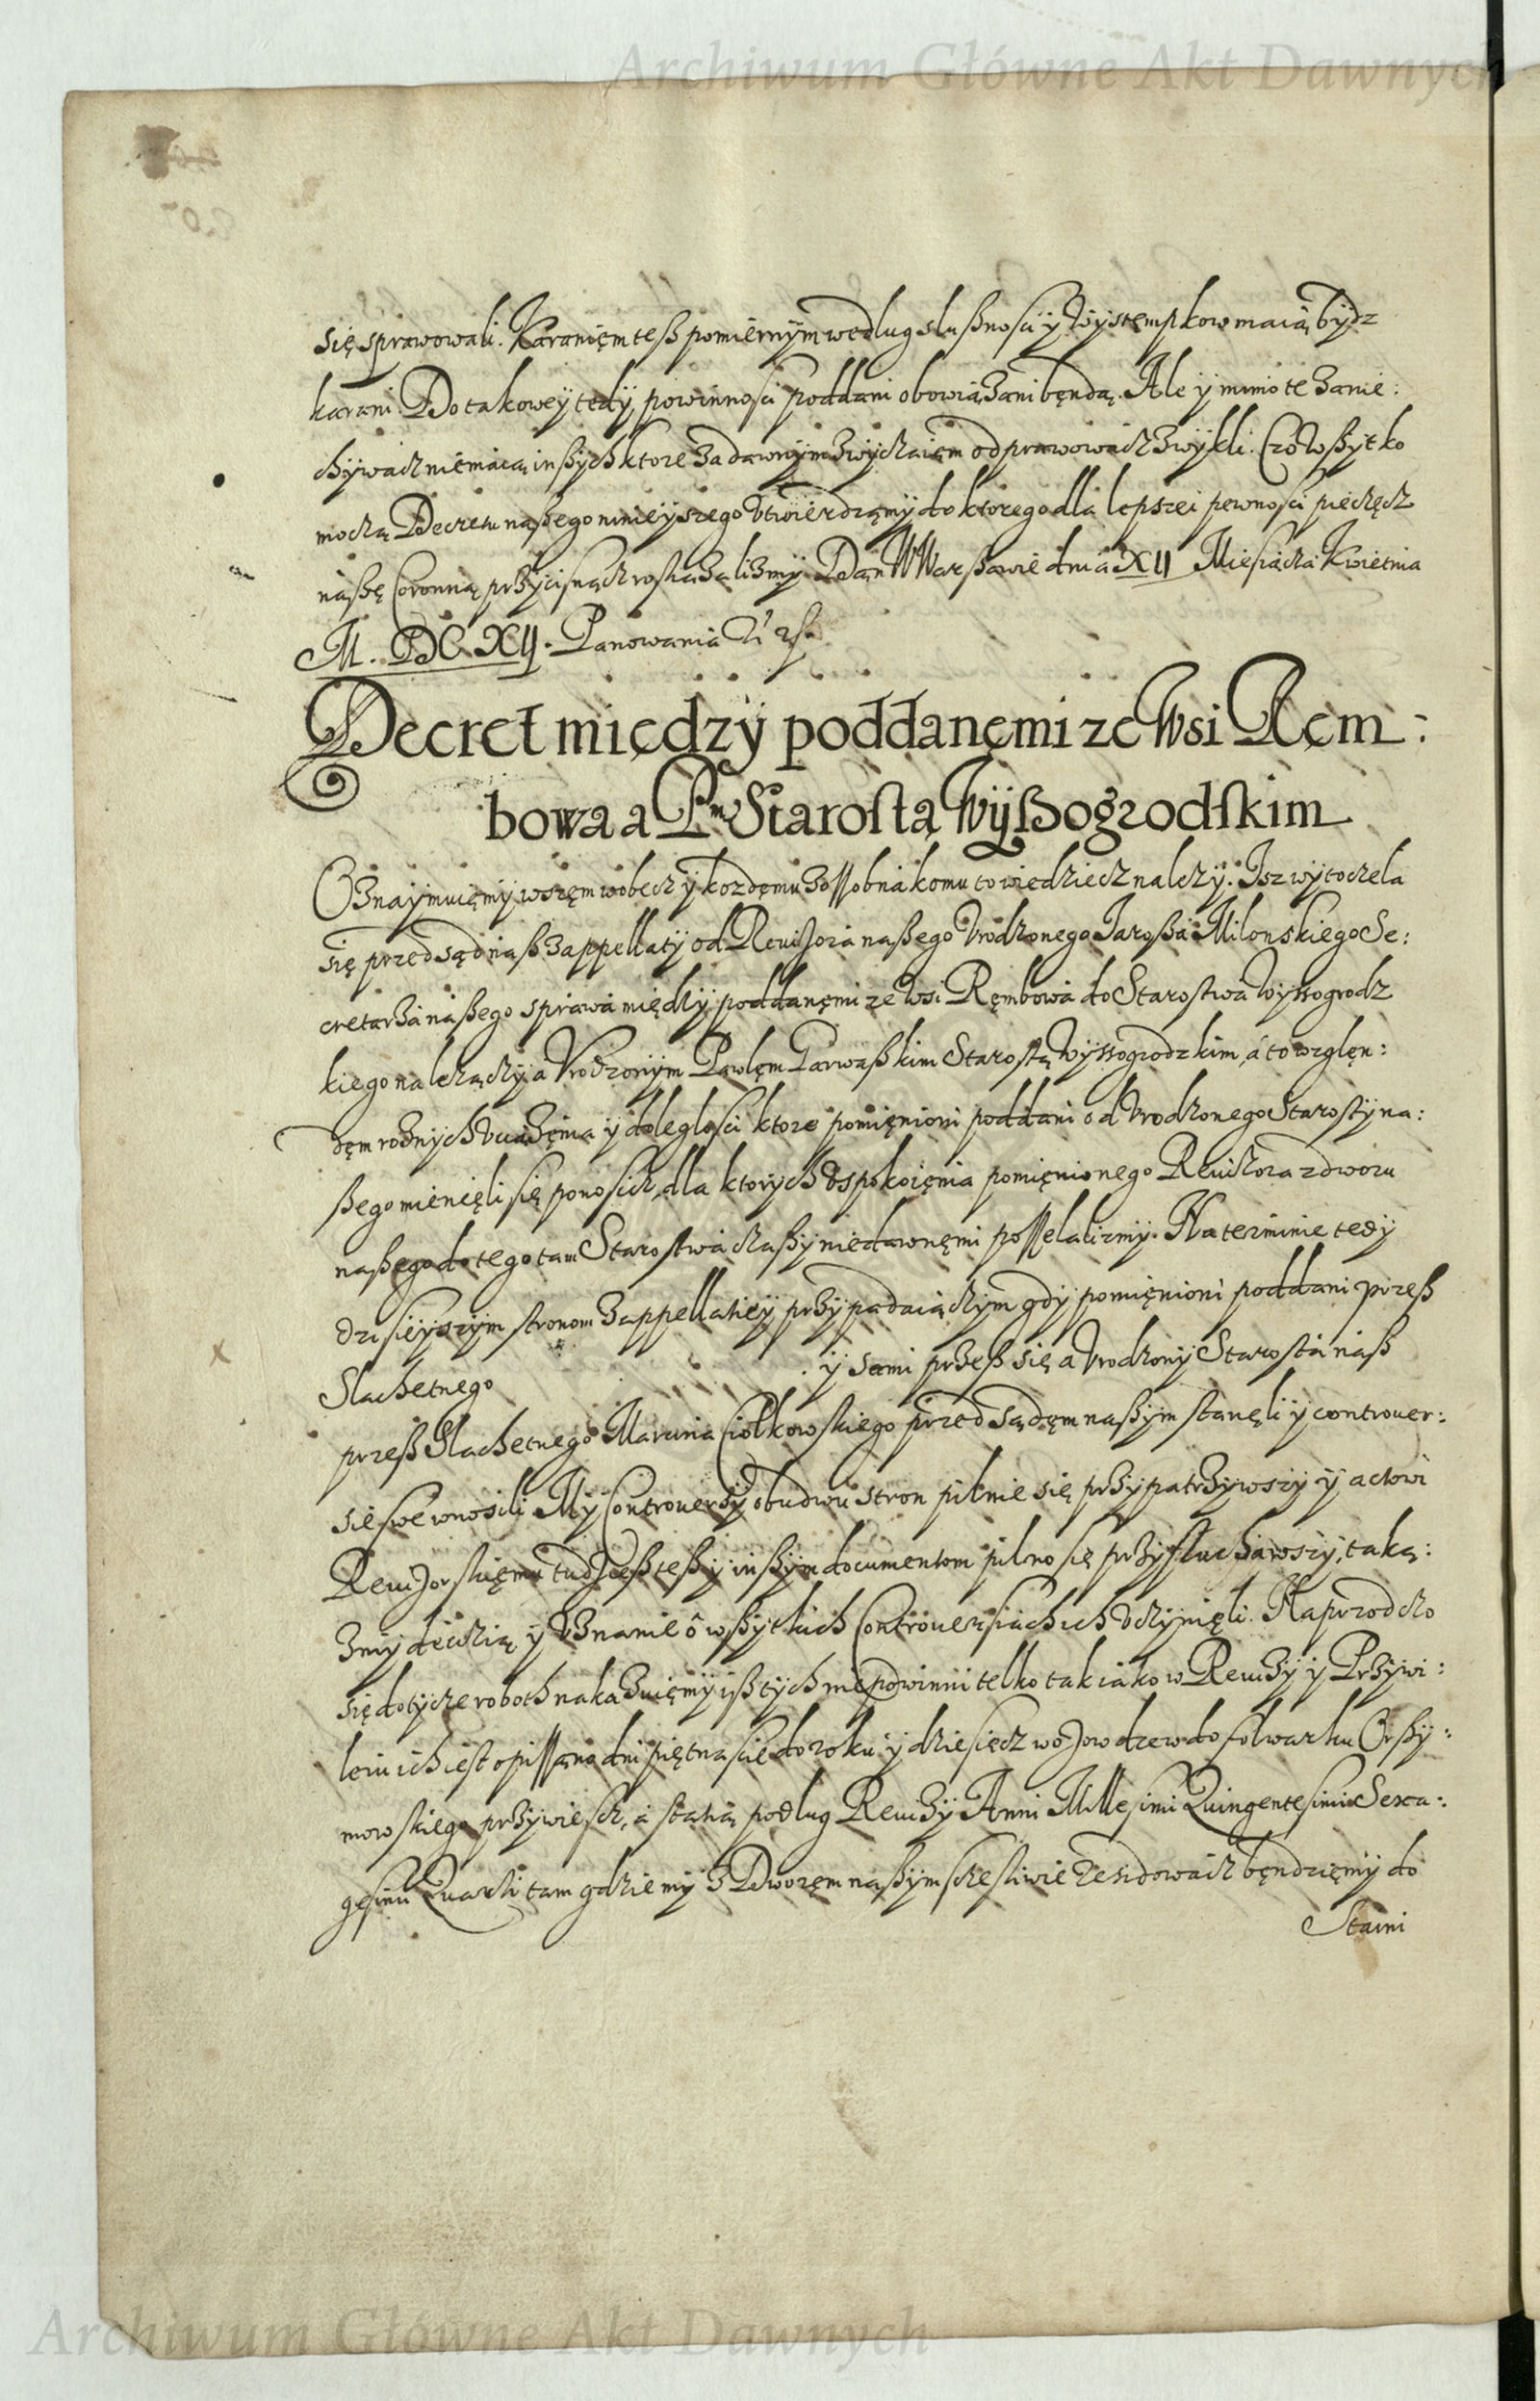 Archiwum Główne Akt Dawnych
się sprawowali. Karanięm teß pomiernym według slußnosci y Występkow maią bydz
karani. Do takowey tedy powinnosci poddani obowiązani bęndą. Ale y mimo te zanie:
chywacz niemaią inßych ktore za dawnym zwyczaięm odprawowacz zwykli. Czo wßytko
moczą Decretu naßego ninieyszego Utwierdzamy do ktorego dla lepszei pewnosci pieczęcz
naßę Coronną przycisnącz roskazalizmy. Dan W Warßawie dnia XII Miesiącza Kwietnia
M. DC. XII. Panowania
Decret między poddanęmi ze Wsi Ręm:
bowa a Pm Starostą Wyßogrodskim
Oznaymuięmy wszęm wobecz y kozdęmu zossobna komu to wiedziecz nalezy. Isz wytoczela
się przed sąd nasz z appellaty od Revizora naßego Urodzonego Jaroßa Milonskiego Se:
cretarza naßego sprawa między poddanęmi ze wsi Ręmbowa do Starostwa Wyssogrodz
kiego należączy a Urodzonym Pawlęm Garwaßkim Starostą Wyssogrodzkim, a to wzglęn:
dęm roznych uciązęnia y doleglosci ktore pomięnioni poddani od Urodzonego Starosty na:
ßego mienięli się ponosicz, dla ktorych uspokoięnia pomięnionego Revizora z dworu
naßego do tego tam Starostwa czaßy niedawnęmi possełalizmy. Na terminie tedy
dzisieyszym stronom z appellatiey przypadaiączym gdy pomięnioni poddani przeß
Slachetnego . y sami przeß się a Urodzony Starosta naß
przeß Slachetnego Marcina Ciołkowskiego przed Sądęm naßym stanęli y controuer:
sie swe wnosili. My Controuersy obudwu stron pilnie się przypatrzywszy y actowi
Revizorskięmu tudzieß teß y inßym documentom pilno się przysłuchawszy, taką:
zmy decizią y Uznanie o wßytkich Controuersiach ich uczynięli. Naprzod czo
się dotycze roboth nakazuięmy iß tych nie powinni telko tak iako w Revizy y Przywi:
leiu ich iest opissano dni piętnascie do roku y dziesięcz wozow drew do folwarku Orßy:
mowskiego przywiescz, a stacią podlug Revizÿ Anni Millesimi Quingentesimi Sexa:
gesimi Quarti tam gdzie my z Dworęm naßym sczesliwie rezidowacz bęndzięmy do
Staini
Archiwum Główne Akt Dawnych